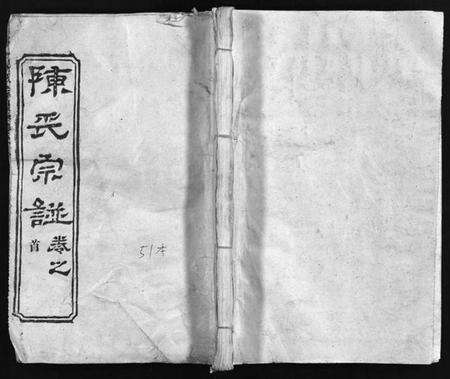 陳氏宗譜
卷之
首
51本